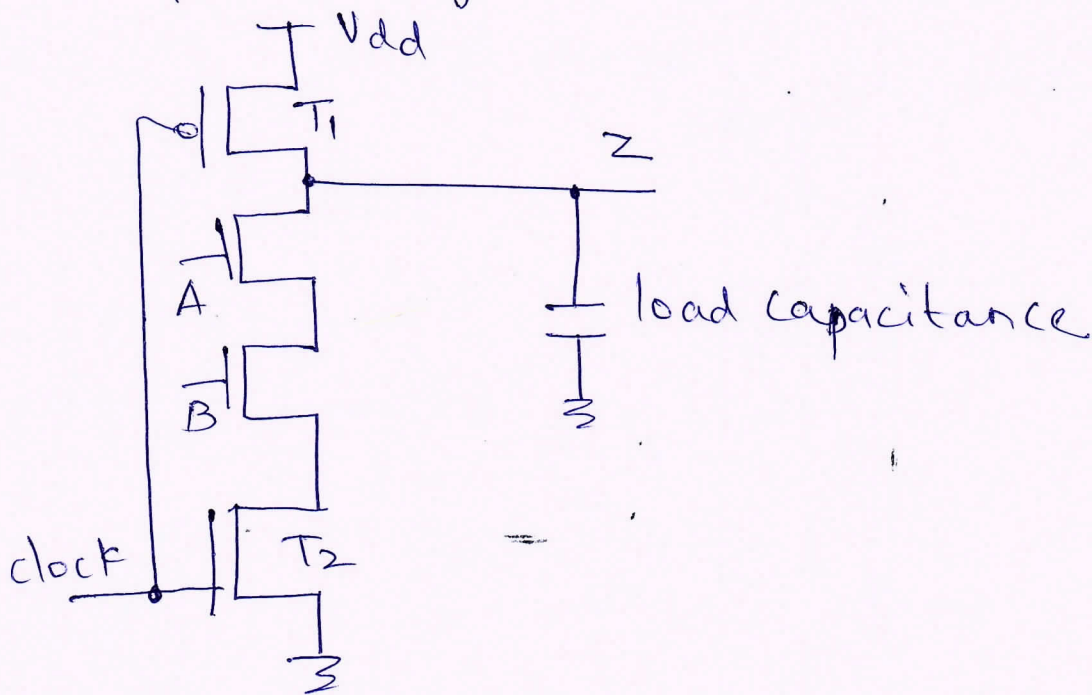 Vdd
T1
Z
A
load capacitance
B
T2
clock